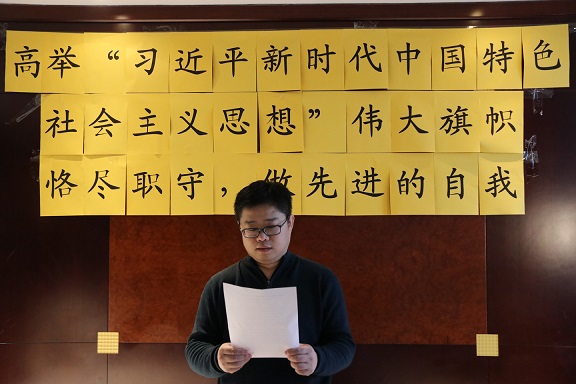 高举“习近平新时代中国特色
社会主义思想”伟大旗帜
恪尽职守，做先进的自我